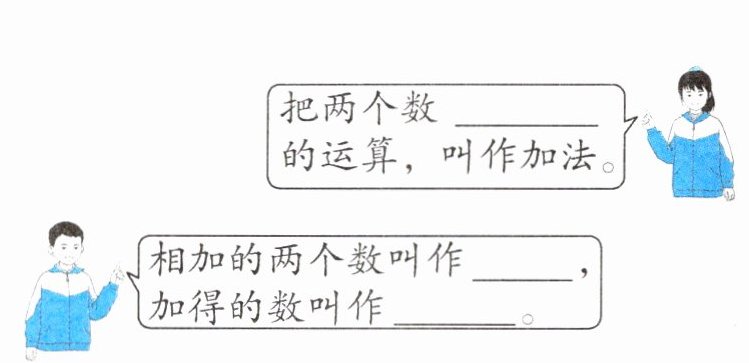 把两个数 ________
的运算，叫作加法。
相加的两个数叫作 ______，
加得的数叫作 _______。